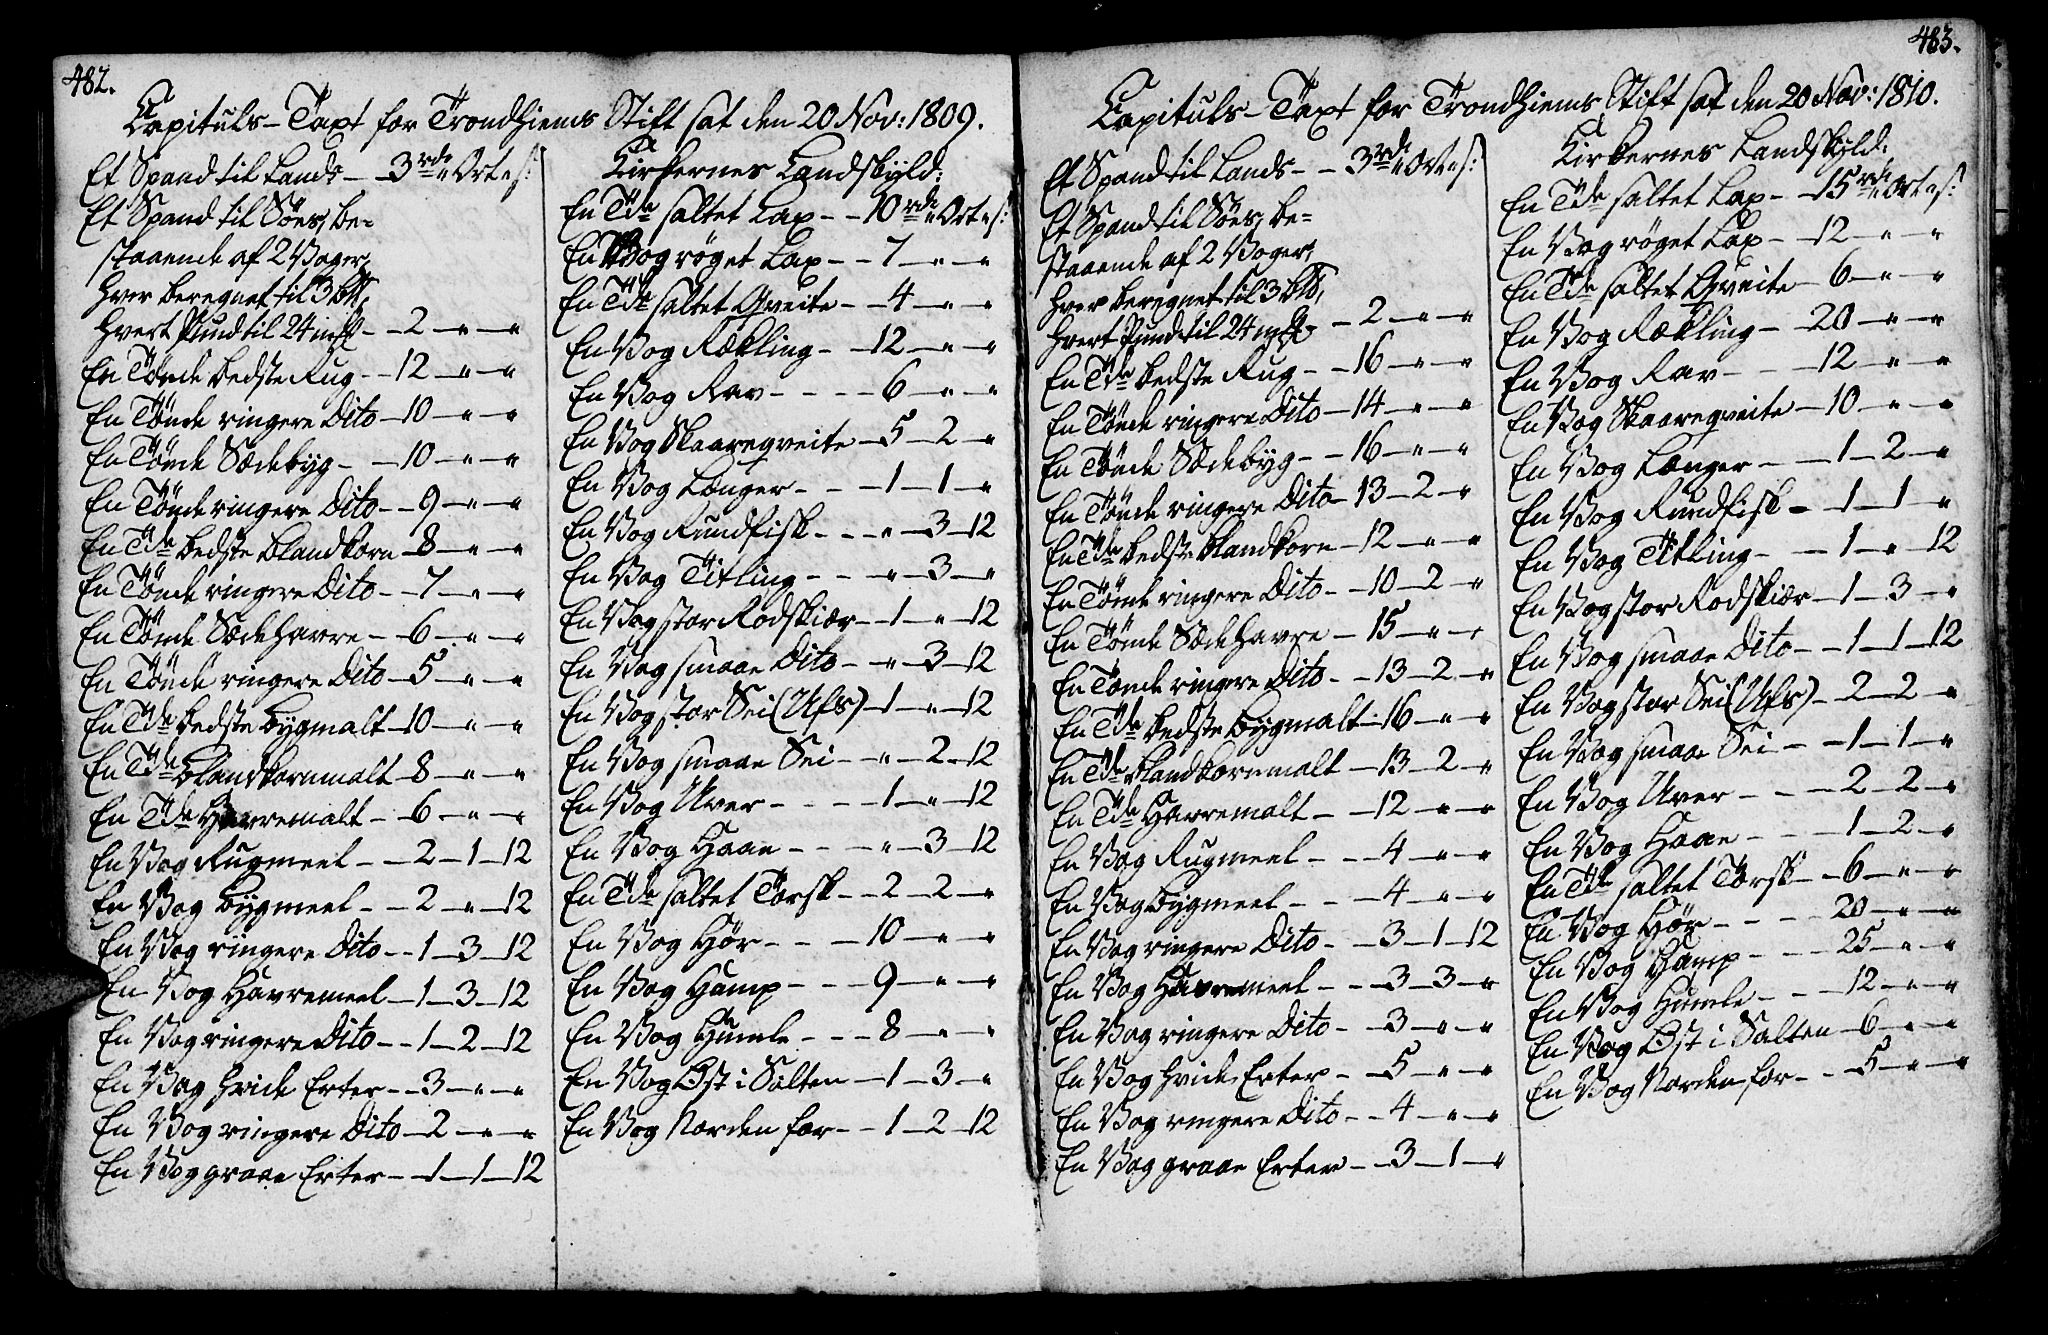 482.
Capituls-Taxt for Trondhiems Stift sat den 20. Nov: 1809.
Et Spand til Lands - - 3 rd " Ort " s:
Et Spand til Söes, be-
staaende af 2 Voger,
hver beregnet til 3 b℔,
hvert Pund til 24 m℔ - - 2 - " - "
En Tönde bedste Rug - - 12 - " - "
En Tönde ringere Dito - 10 - " - "
En Tönde Sædebyg - - 10 - " - "
En Tönde ringere Dito - - 9 - " - "
En Tde bedste blandkorn - 8 - " - "
En Tönde ringere Dito - - 7 - " - "
En Tönde Sædehavre - - 6 - " - "
En Tönde ringere Dito - 5 - " - "
En Tde bedste bygmalt - 10 - " - "
En Tde blandkornmalt - 8 - " - "
En Tde Havremalt - 6 - " - "
En Vog Rugmeel - - 2 - 1 - 12
En Vog bygmeel - - 2 - " - 12
En Vog ringere Dito - - 1 - 3 - 12
En Vog Havremeel - 1 - 3 - 12
En Vog ringere Dito - - 1 - 2 - 12
En Vog hvide Erter - - 3 - " - "
En Vog ringere Dito - 2 - " - "
En Vog graae Erter - - 1 - 1 - 12
Kirkernes Landskyld:
En Tde saltet Lax - - 10 rd " Ort " s:
En Vog röget Lax - - 7 - " - "
En Tde saltet Qveite - - 4 - " - "
En Vog Rækling - - 12 - " - "
En Vog Rav - - - - 6 - " - "
En Vog Skaareqveite - 5 - 2 - "
En Vog Længer - - - 1 - 1 - "
En Vog Rundfisk - - - " - 3 - 12
En Vog Titling - - - " - 3 - "
En Vog stor Rodskiær - 1 - " - 12
En Vog smaae Dito - - " - 3 - 12
En Vog stor Sei (Ufs) - 1 - " - 12
En Vog smaae Sei - - " - 2 - 12
En Vog Uver - - - - 1 - " - 12
En Vog Haae - - - " - 3 - 12
En Tde saltet Torsk - - 2 - 2 - "
En Vog Hör - - - 10 - " - "
En Vog Hamp - - - 9 - " - "
En Vog Humle - - - 8 - " - "
En Vog Ost i Salten - 1 - 3 - "
En Vog Norden for - - 1 - 2 - 12
483.
Capituls-Taxt for Trondhiems Stift sat den 20 Nov: 1810.
Et Spand til Lands - - 3 rd " Ort " s:
Et Spand til Söes, be-
staaende af 2 Voger,
hver beregnet til 3 b℔,
hvert Pund til 24 m℔ - - 2 - " - "
En Tde bedste Rug - - 16 - " - "
En Tönde ringere Dito - 14 - " - "
En Tönde Sædebyg - - 16 - " - "
En Tönde ringere Dito - 13 - 2 - "
En Tde bedste blandkorn - 12 - " - "
En Tönde ringere Dito - - 10 - 2 - "
En Tönde Sædehavre - 15 - " - "
En Tönde ringere Dito - - 13 - 2 - "
En Tde bedste bygmalt - 16 - " - "
En Tde blandkornmalt - 13 - 2 - "
En Tde Havremalt - - 12 - " - "
En Vog Rugmeel - - 4 - " - "
En Vog bygmeel - - - 4 - " - "
En Vog ringere Dito - - 3 - 1 - 12
En Vog Havremeel - - 3 - 3 - "
En Vog ringere Dito - - 3 - " - "
En Vog hvide Erter - - 5 - " - "
En Vog ringere Dito - - 4 - " - "
En Vog graae Erter - - 3 - 1 - "
Kirkernes Landskyld:
En Tde saltet Lax - - 15 rd " Ort " s:
En Vog röget Lax - - 12 - " - "
En Tde saltet Qveite - 6 - " - "
En Vog Rækling - - 20 - " - "
En Vog Rav - - - 12 - " - "
En Vog Skaareqveite - 10 - " - "
En Vog Længer - - - 1 - 2 - "
En Vog Rundfisk - - 1 - 1 - "
En Vog Titling - - - 1 - " - 12
En Vog stor Rodskiær - 1 - 3 - "
En Vog smaae Dito - - 1 - 1 - 12
En Vog stor Sei (Ufs) - 2 - 2 - "
En Vog smaae Sei - - 1 - 1 - "
En Vog Uver - - - 2 - 2 - "
En Vog Haae - - - 1 - 2 - "
En Tde saltet Torsk - - 6 - " - "
En Vog Hör - - - - 20 - " - "
En Vog Hamp - - - 25 - " - "
En Vog Humle - - - 12 - " - "
En Vog Ost i Salten - 6 - " - "
En Vog Norden for - - 5 - " - "